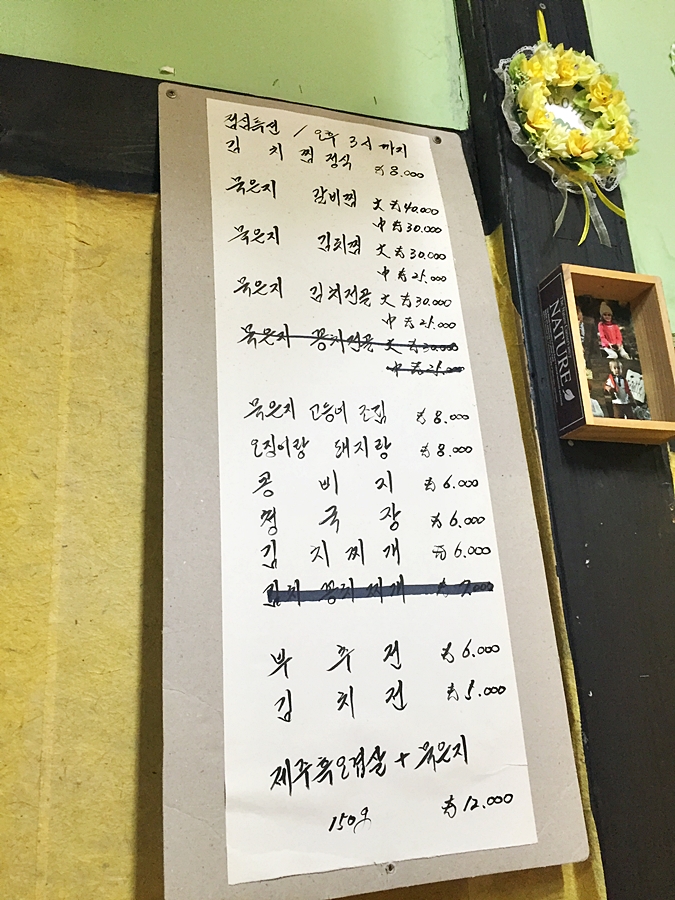 점심특선 / 오후 3시 까지
김 치 찜 정식 ₩8.000
묵은지 갈비찜 大 ₩40.000
中 ₩30.000
묵은지 김치찜 大 ₩30.000
中 ₩25.000
묵은지 김치전골 大 ₩30.000
中 ₩25.000
묵은지 꽁치전골 大 ₩30.000
中 ₩25.000
묵은지 고등어 조림 ₩8.000
오징어랑 돼지랑 ₩8.000
콩 비 지 ₩6.000
청 국 장 ₩6.000
김 치 찌 개 ₩6.000
김치 꽁치 찌개 ₩7.000
부 추 전 ₩6.000
김 치 전 ₩5.000
제주흑오겹살 + 묵은지
150g ₩12.000
NATURE